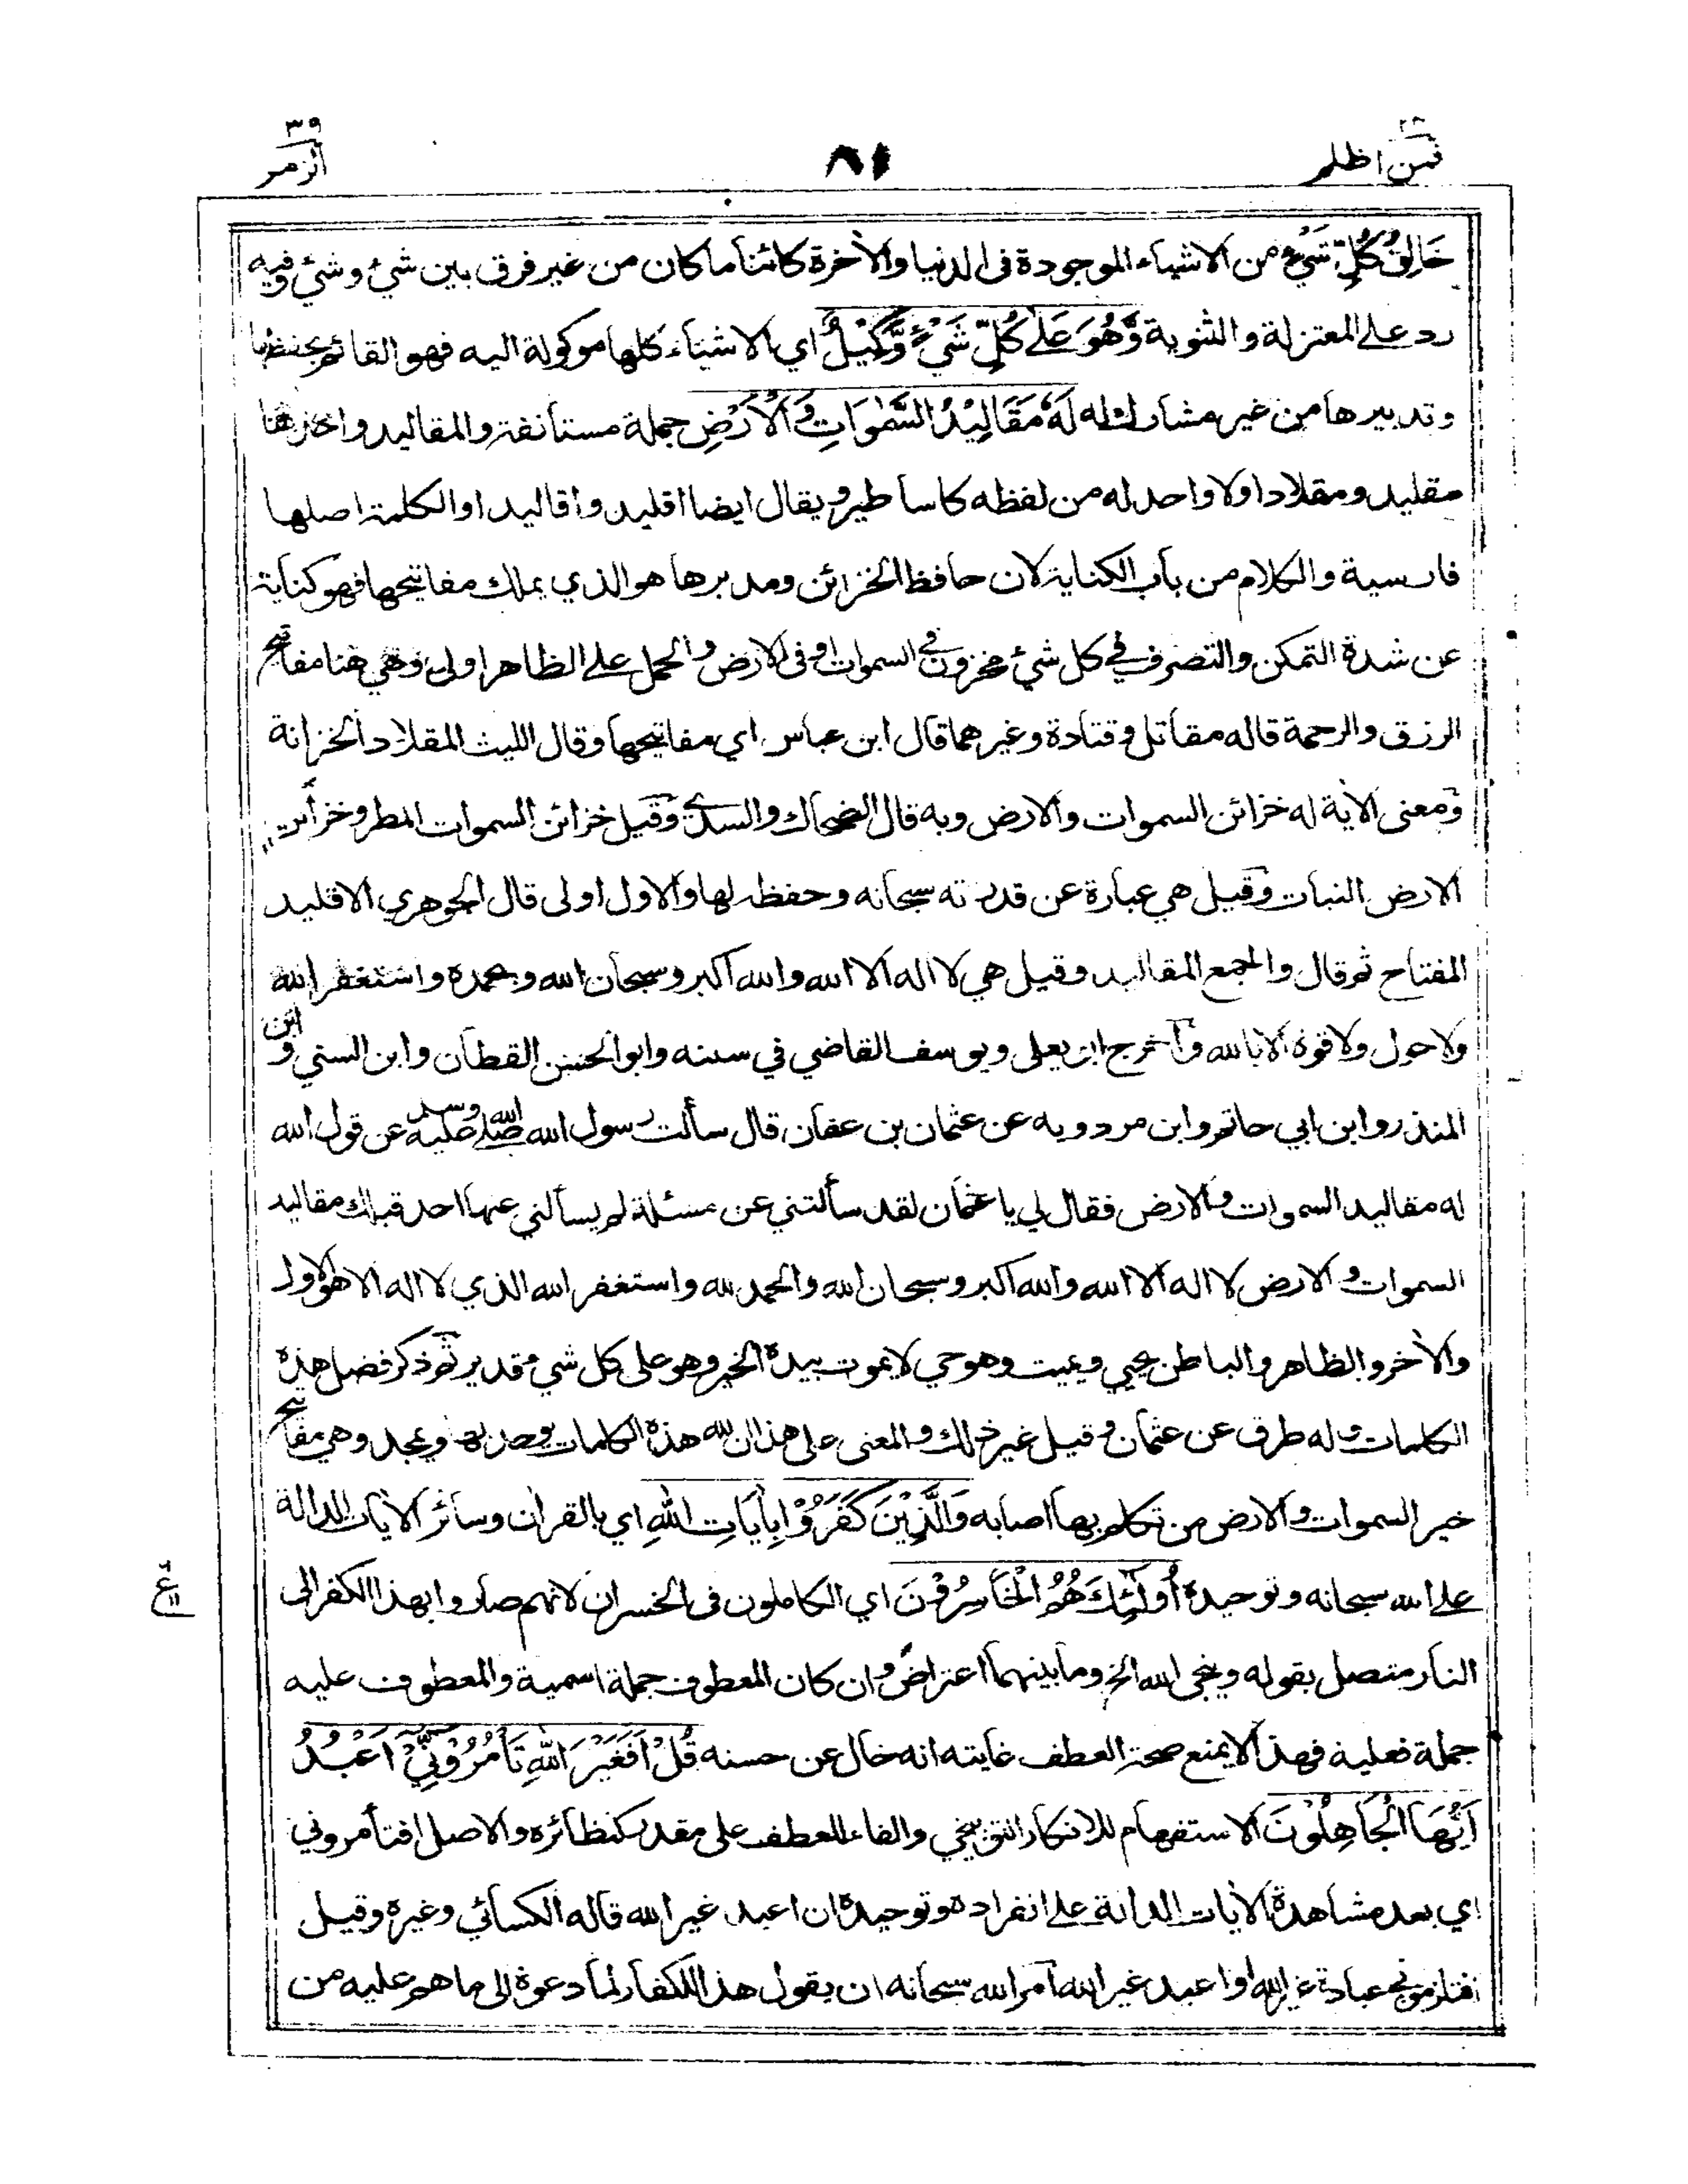 فمن اظلم ٢٤
٨١
الزمر ٣٩
خَالِقُ كُلِّ شَيْءٍ من الاشياء الموجودة فى الدنيا والاخرة كائنا ما كان من غير فرق بين شئ وشئ وفيه
رد على المعتزلة والثنوية وَّهُوَ عَلٰى كُلِّ شَيْءٍ وَّكِيْلٌ اي الاشياء كلها موكولة اليه فهو القائم بحفظها
وتدبيرها من غير مشارك له لَهٗ مَقَالِيْدُ السَّمٰوَاتِ وَالْاَرْضِ جملة مستأنفة والمقاليد واحدها
مقليد ومقلاد اولا واحد له من لفظه كاساطير ويقال ايضا اقليد واقاليد او الكلمة اصلها
فارسية والكلام من باب الكناية لان حافظ الخزائن ومدبرها هو الذي يملك مفاتيحها فهو كناية
عن شدة التمكن والتصرف في كل شئ مخزون في السموات او فى الارض والحمل على الظاهر اولى وهي هنا مفاتيح
الرزق والرحمة قاله مقاتل وقتادة وغيرهما قال ابن عباس اي مفاتيحها وقال الليث المقلاد الخزانة
ومعنى الاية له خزائن السموات والارض وبه قال الضحاك والسدي وقيل خزائن السموات المطر وخزائن
الارض النبات وقيل هي عبارة عن قدرته سبحانه وحفظه لها والاول اولى قال الجوهري الاقليد
المفتاح ثم قال والجمع المقاليد وقيل هي لا اله الا الله والله اكبر وسبحان الله وبحمده واستغفر الله
ولا حول ولا قوة الا بالله وأخرج ابو يعلى ويوسف القاضي في سننه وابو الحسن القطان وابن السني وابن
المنذر وابن ابي حاتم وابن مردويه عن عثمان بن عفان قال سألت رسول الله صلى الله عليه وسلم عن قول الله
له مقاليد السموات والارض فقال لي يا عثمان لقد سألتني عن مسئلة لم يسألني عنها احد قبلك مقاليد
السموات والارض لا اله الا الله والله اكبر وسبحان الله والحمد لله واستغفر الله الذي لا اله الا هو الاول
والاخر والظاهر والباطن يحيي ويميت وهو حي لا يموت بيده الخير وهو على كل شيء قدير ثم ذكر فضل هذه
الكلمات وله طرق عن عثمان وقيل غير ذلك والمعنى على هذا ان لله هذه الكلمات يوحد بها ويمجد وهي مفاتيح
خير السموات والارض من تكلم بها اصابه وَالَّذِيْنَ كَفَرُوْا بِاٰيَاتِ اللّٰهِ اي بالقران وسائر الايات الدالة
على الله سبحانه وتوحيده اُولٰئِكَ هُمُ الْخَاسِرُوْنَ اي الكاملون فى الخسران لانهم صاروا بهذا الكفر الى
ع ١١
النار متصل بقوله وينجى الله الخ وما بينهما اعتراض وان كان المعطوف جملة اسمية والمعطوف عليه
جملة فعلية فهذا لا يمنع صحة العطف غايته انه خال عن حسنه قُلْ اَفَغَيْرَ اللّٰهِ تَاْمُرُوْنِّيْ اَعْبُدُ
اَيُّهَا الْجَاهِلُوْنَ الاستفهام للانكار التوبيخي والفاء للعطف على مقدر كنظائره والاصل افتأمروني
اي بعد مشاهدة الايات الدالة على انفراده وتوحيده ان اعبد غير الله قاله الكسائي وغيره وقيل
افتلزموني عبادة غير الله او اعبد غير الله أمر الله سبحانه ان يقول هذا للكفار لما دعوه الى ما هم عليه من